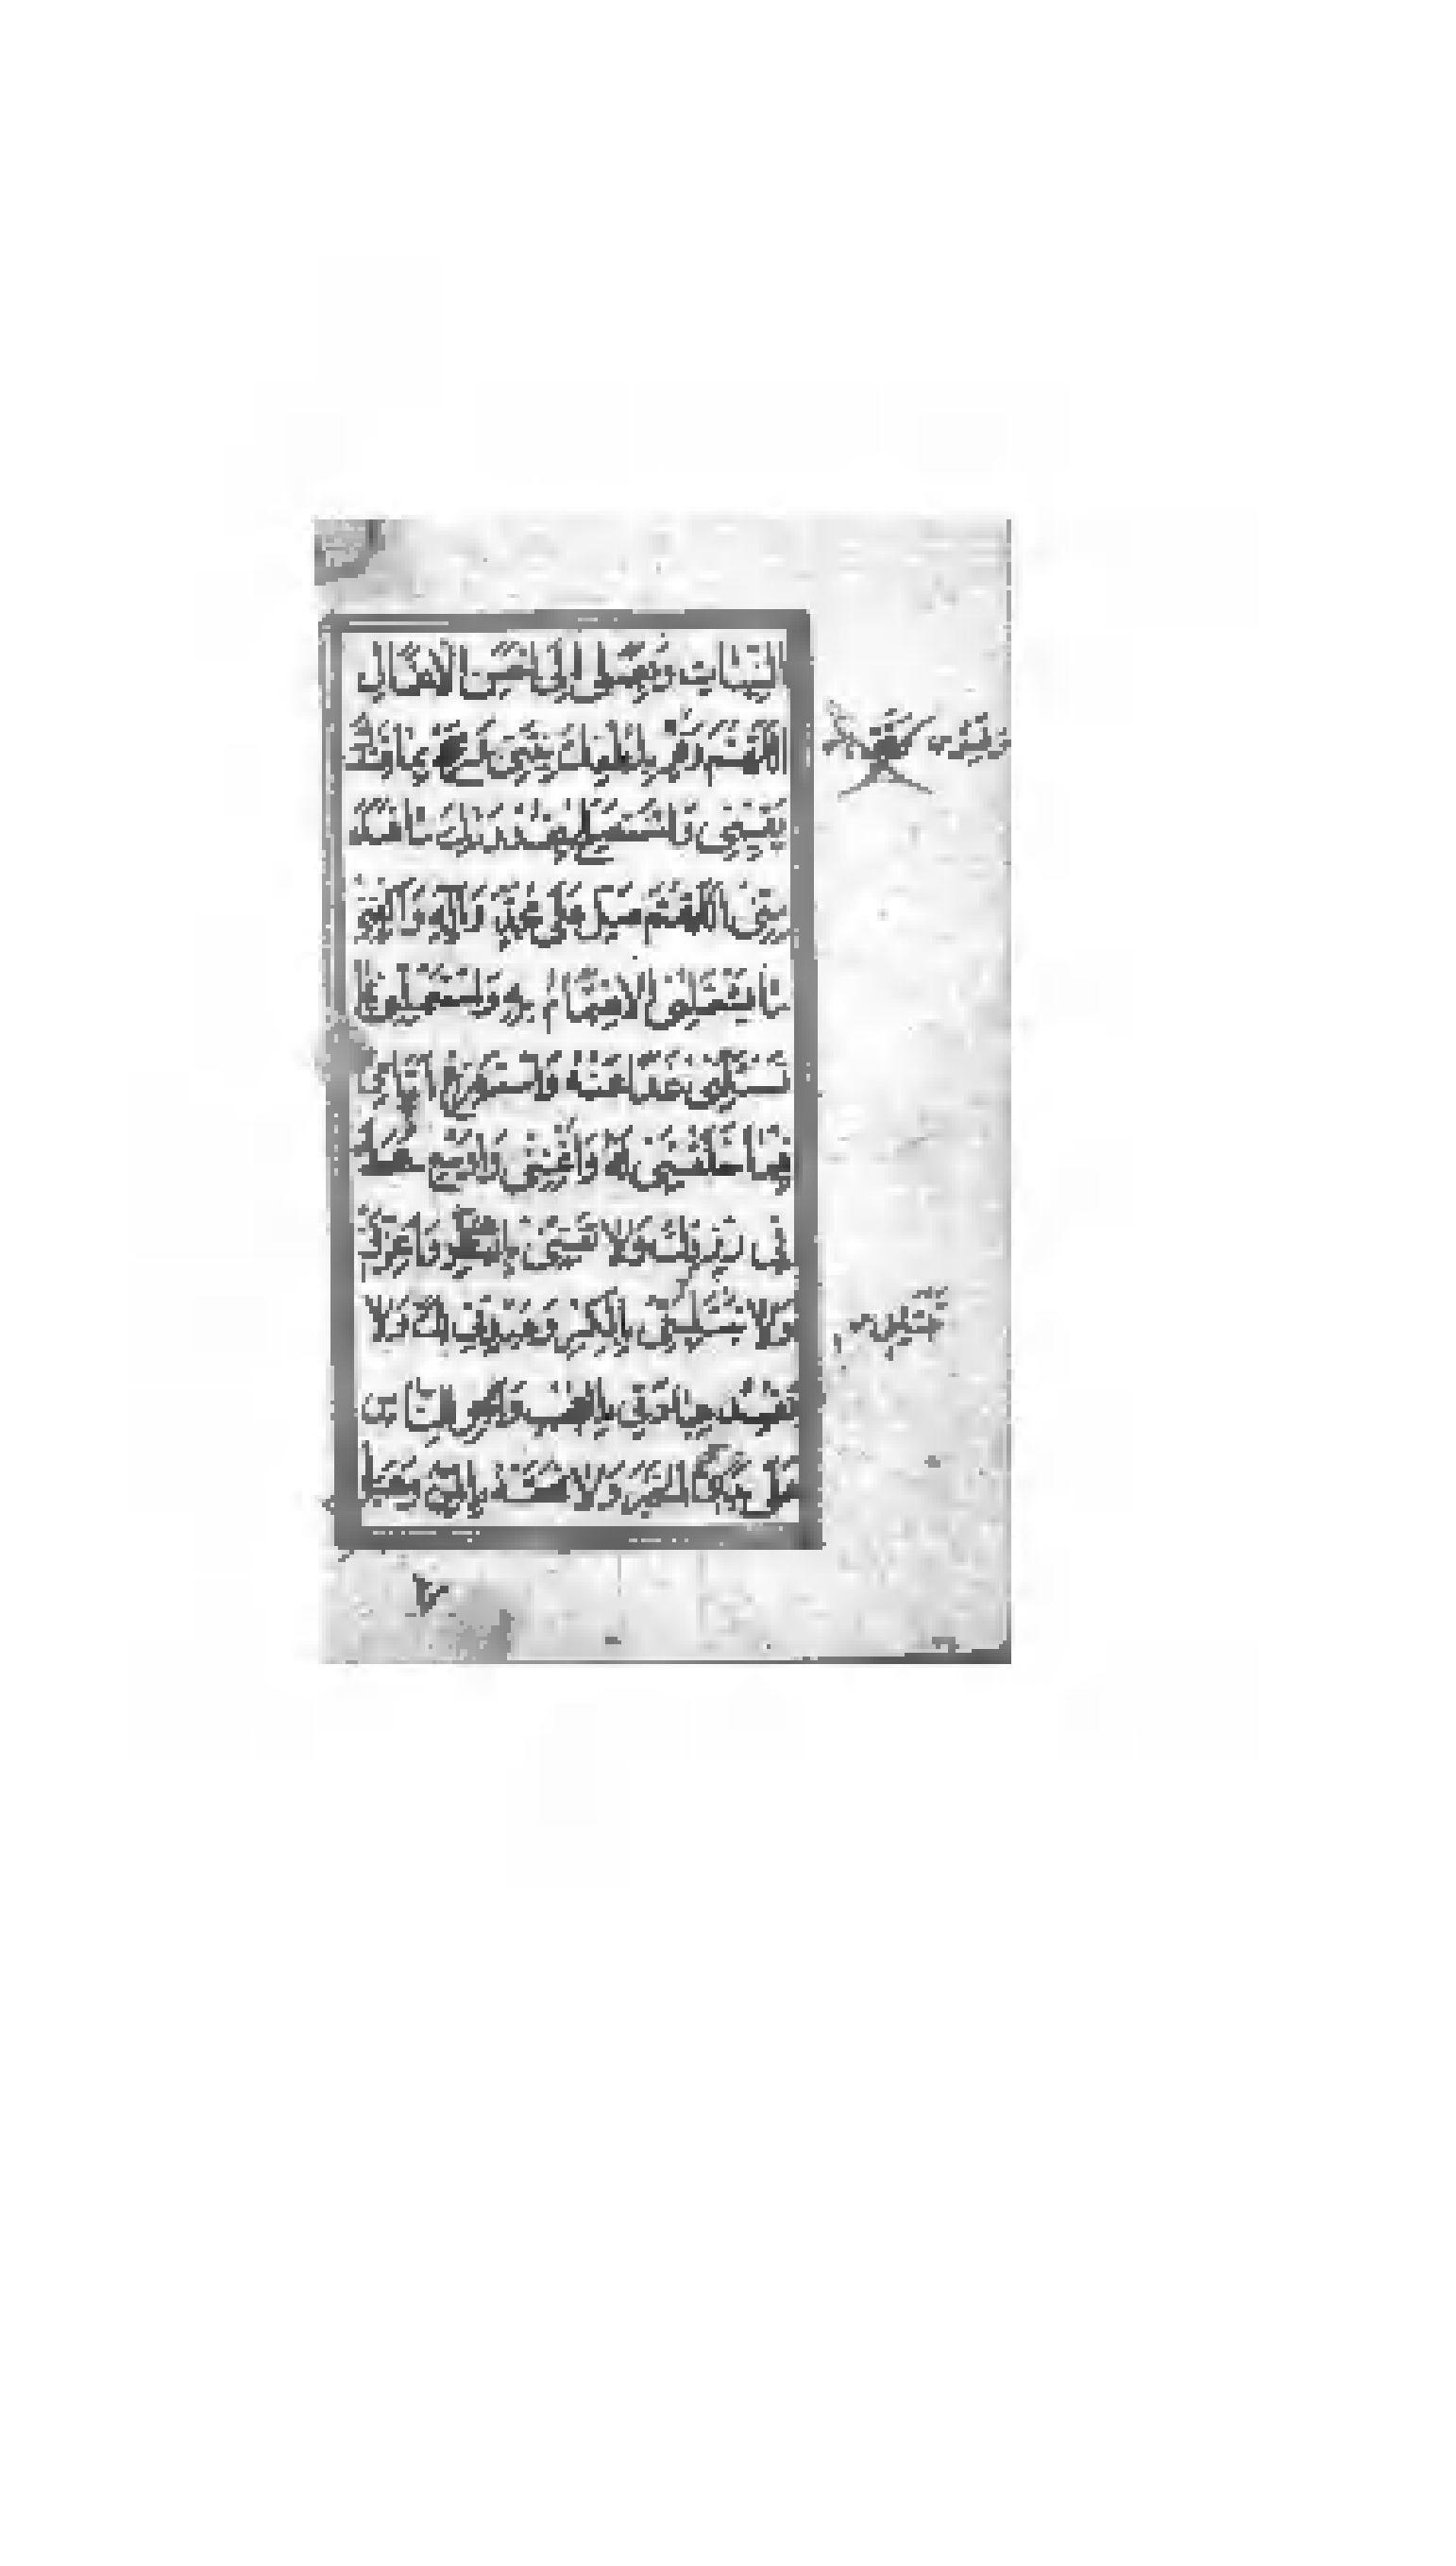 النِّيَّاتِ وَبِعَمَلِي إِلَى أَحْسَنِ الْأَعْمَالِ
اللَّهُمَّ وَفِّرْ بِلُطْفِكَ نِيَّتِي وَصَحِّحْ بِمَا عِنْدَكَ
يَقِينِي وَاسْتَصْلِحْ بِقُدْرَتِكَ مَا فَسَدَ
مِنِّي اللَّهُمَّ صَلِّ عَلَى مُحَمَّدٍ وَآلِهِ وَاكْفِنِي
مَا يَشْغَلُنِي الِاهْتِمَامُ بِهِ وَاسْتَعْمِلْنِي بِمَا
تَسْأَلُنِي غَدًا عَنْهُ وَاسْتَفْرِغْ أَيَّامِي
فِيمَا خَلَقْتَنِي لَهُ وَأَغْنِنِي وَأَوْسِعْ عَلَيَّ
فِي رِزْقِكَ وَلَا تَفْتِنِّي بِالنَّظَرِ وَأَعِزَّنِي
وَلَا تَبْتَلِيَنِّي بِالْكِبْرِ وَعَبِّدْنِي لَكَ وَلَا
تُفْسِدْ عِبَادَتِي بِالْعُجْبِ وَأَجْرِ لِلنَّاسِ
عَلَى يَدَيَّ الْخَيْرَ وَلَا